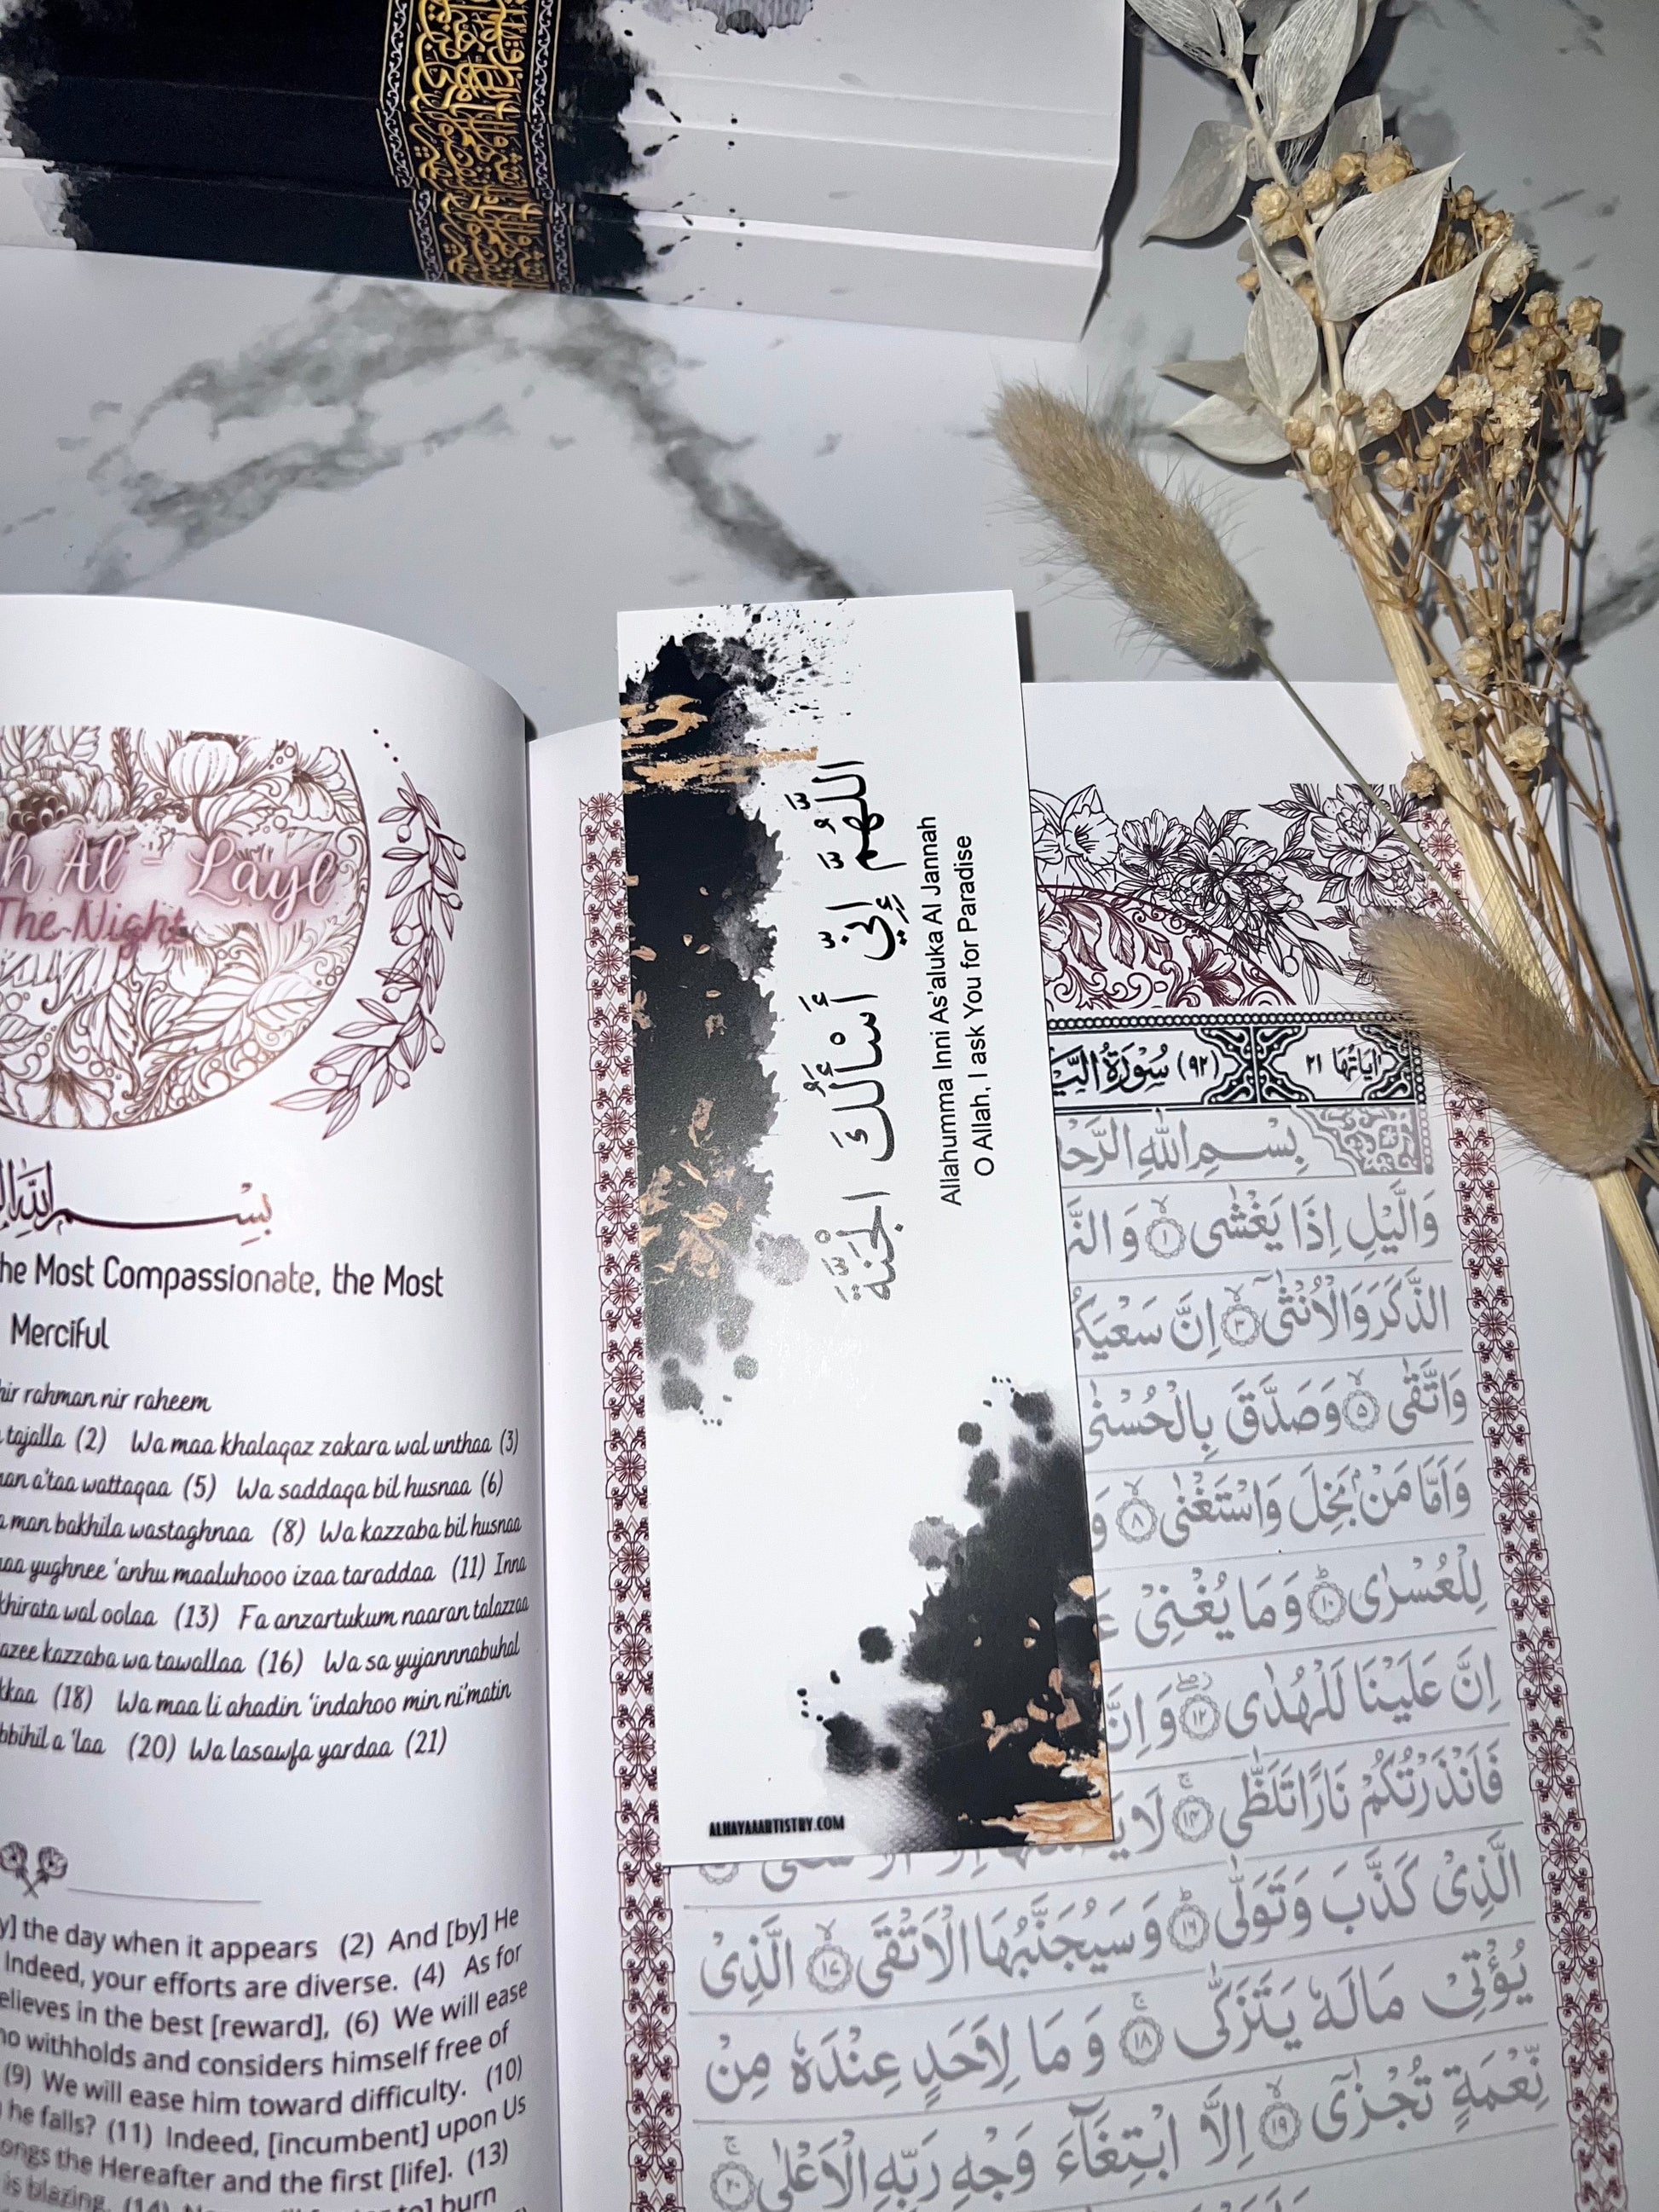 h Al - Layl
The Night
بِسْمِ اللّٰهِ
he Most Compassionate, the Most
Merciful
hir rahman nir raheem
tajalla (2) Wa maa khalaqaz zakara wal unthaa (3)
an a'taa wattaqaa (5) Wa saddaqa bil husnaa (6)
a man bakhila wastaghnaa (8) Wa kazzaba bil husnaa
aa yughnee 'anhu maaluhooo izaa taraddaa (11) Inna
khirata wal oolaa (13) Fa anzartukum naaran talazzaa
azee kazzaba wa tawallaa (16) Wa sa yujannnabuhal
kkaa (18) Wa maa li ahadin 'indahoo min ni'matin
bbihil a 'laa (20) Wa lasawfa yardaa (21)
y] the day when it appears (2) And [by] He
Indeed, your efforts are diverse. (4) As for
elieves in the best [reward], (6) We will ease
ho withholds and considers himself free of
(9) We will ease him toward difficulty. (10)
he falls? (11) Indeed, [incumbent] upon Us
ongs the Hereafter and the first [life]. (13)
is blazing. (14)
to] burn
اللَّهُمَّ إِنِّي أَسْأَلُكَ الْجَنَّةَ
Allahumma Inni As'aluka Al Jannah
O Allah, I ask You for Paradise
ALHAYAAARTISTRY.COM
اٰيَاتُهَا ٢١ (٩٢) سُوْرَةُ
بِسْمِ اللّٰهِ الرَّحْ
وَالَّيْلِ اِذَا يَغْشٰى ١ وَ
الذَّكَرَ وَالْاُنْثٰٓى ٣ اِنَّ سَعْيَكُ
وَاتَّقٰى ٥ وَصَدَّقَ بِالْحُسْنٰى
وَاَمَّا مَنْۢ بَخِلَ وَاسْتَغْنٰى ٨ وَ
لِلْعُسْرٰى ١٠ وَمَا يُغْنِيْ عَ
اِنَّ عَلَيْنَا لَلْهُدٰى ١٢ وَاِنَّ
فَاَنْذَرْتُكُمْ نَارًا تَلَظّٰى ١٤ لَا يَ
الَّذِيْ كَذَّبَ وَتَوَلّٰى ١٦ وَسَيُجَنَّبُهَا الْاَتْقَى ١٧ الَّذِيْ
يُؤْتِيْ مَالَهٗ يَتَزَكّٰى ١٨ وَمَا لِاَحَدٍ عِنْدَهٗ مِنْ
نِّعْمَةٍ تُجْزٰٓى ١٩ اِلَّا ابْتِغَآءَ وَجْهِ رَبِّهِ الْاَعْلٰى ٢٠